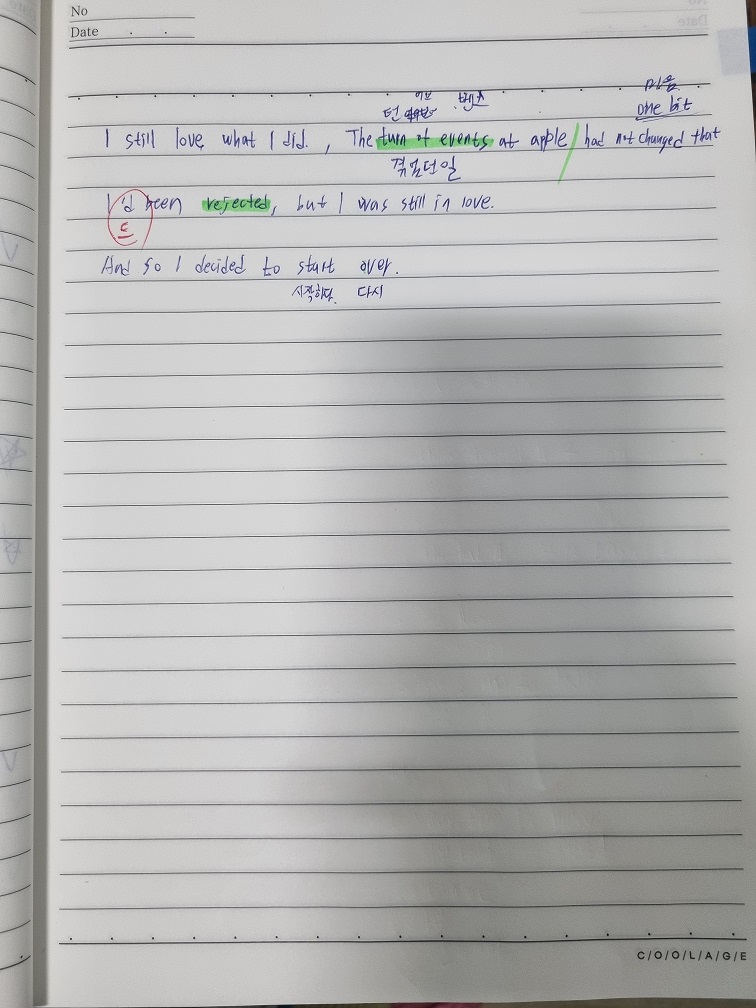 No
Date . .
마음
턴 어브 벤츠
one bit
I still love what I did. , The turn of events at apple / had not changed that
겪었던일
I'd been rejected, but I was still in love.
And so I decided to start over.
시작하다. 다시
C/O/O/L/A/G/E